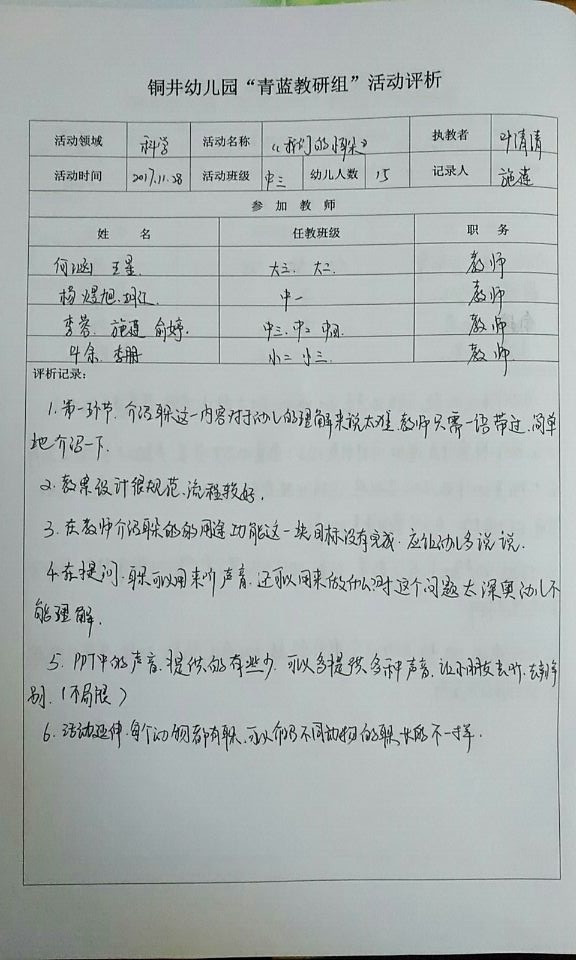 铜井幼儿园“青蓝教研组”活动评析
活动领域 科学 活动名称 《我们的耳朵》 执教者 叶清清
活动时间 2017.11.28 活动班级 中三 幼儿人数 15 记录人 施莲
参加教师
姓名 任教班级 职务
何涵 王星. 大三、大二. 教师
杨煜旭. 中一 教师
李蓉、施莲 俞婷. 中三、中二 教师
叶余、李朋 小二 小三. 教师
评析记录:
1.第一环节,介绍耳朵这一内容对于幼儿的理解来说太难,教师只需一语带过,简单
地介绍一下.
2.教案设计很规范,流程较好.
3.在教师介绍耳朵的的用途功能这一块目标没有完成.应让幼儿多说说.
4.在提问.耳朵可以用来听声音,还可以用来做什么时这个问题太深奥幼儿不
能理解.
5.PPT中的声音.提供的有些少.可以多提供多种声音,让小朋友去听,去辨
别.(不局限)
6.活动延伸.每个动物都有耳朵.可以介绍不同动物的耳朵长的不一样.